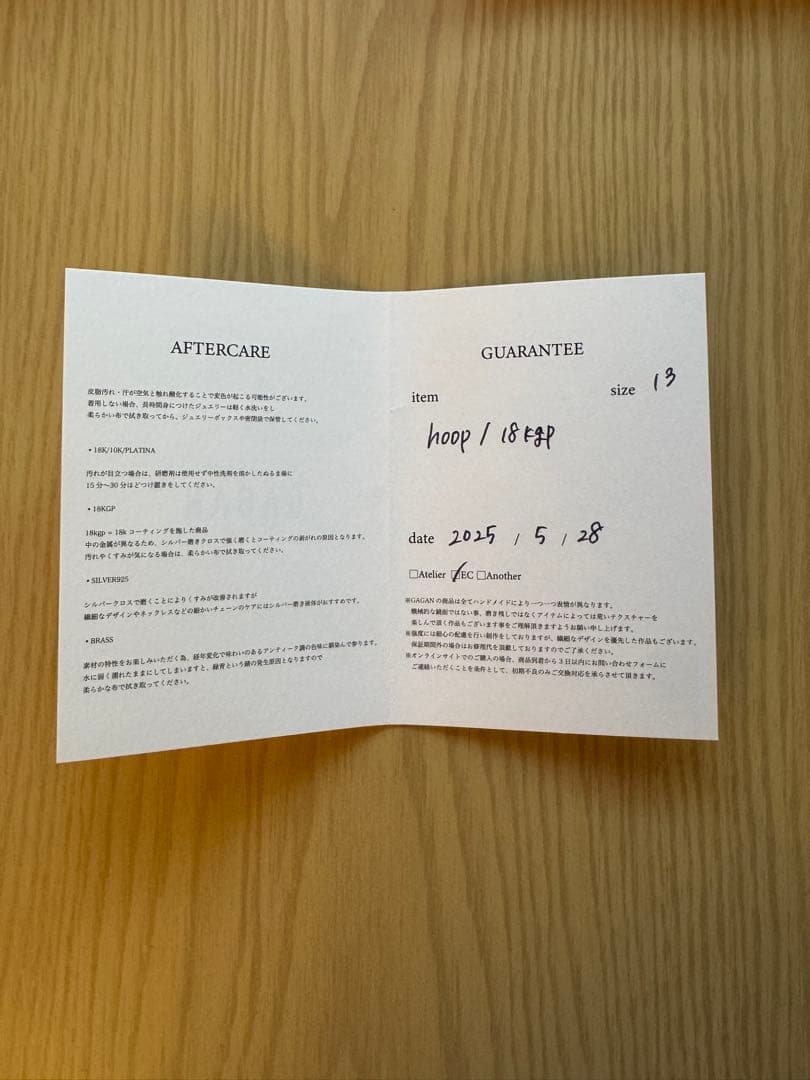 AFTERCARE
皮脂汚れ・汗が空気と触れ酸化することで変色が起こる可能性がございます。
着用しない場合、長時間身につけたジュエリーは軽く水洗いをし
柔らかい布で拭き取ってから、ジュエリーボックスや密閉袋で保管してください。
・18K/10K/PLATINA
汚れが目立つ場合は、研磨剤は使用せず中性洗剤を溶かしたぬるま湯に
15分〜30分ほどつけ置きをしてください。
・18KGP
18kgp = 18kコーティングを施した商品
中の金属が異なるため、シルバー磨きクロスで強く磨くとコーティングの剥がれの原因となります。
汚れやくすみが気になる場合は、柔らかい布で拭き取ってください。
・SILVER925
シルバークロスで磨くことによりくすみが改善されますが
繊細なデザインやネックレスなどの細かいチェーンのケアにはシルバー磨き液体がおすすめです。
・BRASS
素材の特性をお楽しみいただく為、経年変化で味わいのあるアンティーク調の色味に馴染んで参ります。
水に弱く濡れたままにしてしまいますと、緑青という錆の発生原因となりますので
柔らかな布で拭き取ってください。
GUARANTEE
item
size 13
hoop / 18kgp
date 2025 / 5 / 28
□Atelier ☑EC □Another
※GAGANの商品は全てハンドメイドにより一つ一つ表情が異なります。
機械的な鏡面ではない事、磨き残しではなくアイテムによっては荒いテクスチャーを
楽しんで頂く作品もございます事をご理解頂きますようお願い申し上げます。
※強度には細心の配慮を行い制作をしておりますが、繊細なデザインを優先した作品もございます。
保証期間外の場合はお修理代を頂戴しておりますのでご了承ください。
※オンラインサイトでのご購入の場合、商品到着から3日以内にお問い合わせフォームに
ご連絡いただくことを条件として、初期不良のみご交換対応を承らさせて頂きます。